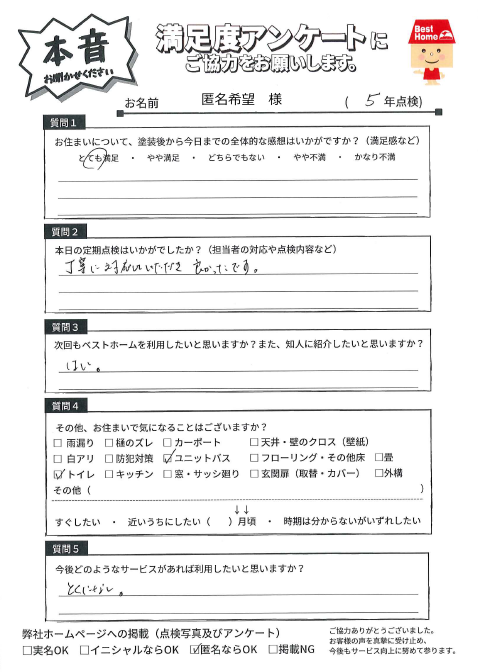 本音
お聞かせください
満足度アンケートに
ご協力をお願いします。
Best Home
お名前 匿名希望 様 ( 5 年点検)
質問1
お住まいについて、塗装後から今日までの全体的な感想はいかがですか?(満足感など)
とても満足 ・ やや満足 ・ どちらでもない ・ やや不満 ・ かなり不満
質問2
本日の定期点検はいかがでしたか?(担当者の対応や点検内容など)
丁寧に対応いただき 良かったです。
質問3
次回もベストホームを利用したいと思いますか?また、知人に紹介したいと思いますか?
はい。
質問4
その他、お住まいで気になることはございますか?
□ 雨漏り □ 樋のズレ □ カーポート □ 天井・壁のクロス(壁紙)
□ 白アリ □ 防犯対策 ☑ ユニットバス □ フローリング・その他床 □ 畳
☑ トイレ □ キッチン □ 窓・サッシ廻り □ 玄関扉(取替・カバー) □ 外構
その他( )
↓↓
すぐしたい ・ 近いうちにしたい( )月頃 ・ 時期は分からないがいずれしたい
質問5
今後どのようなサービスがあれば利用したいと思いますか?
とくになし。
弊社ホームページへの掲載(点検写真及びアンケート)
□実名OK □イニシャルならOK ☑匿名ならOK □掲載NG
ご協力ありがとうございました。
お客様の声を真摯に受け止め、
今後もサービス向上に努めて参ります。